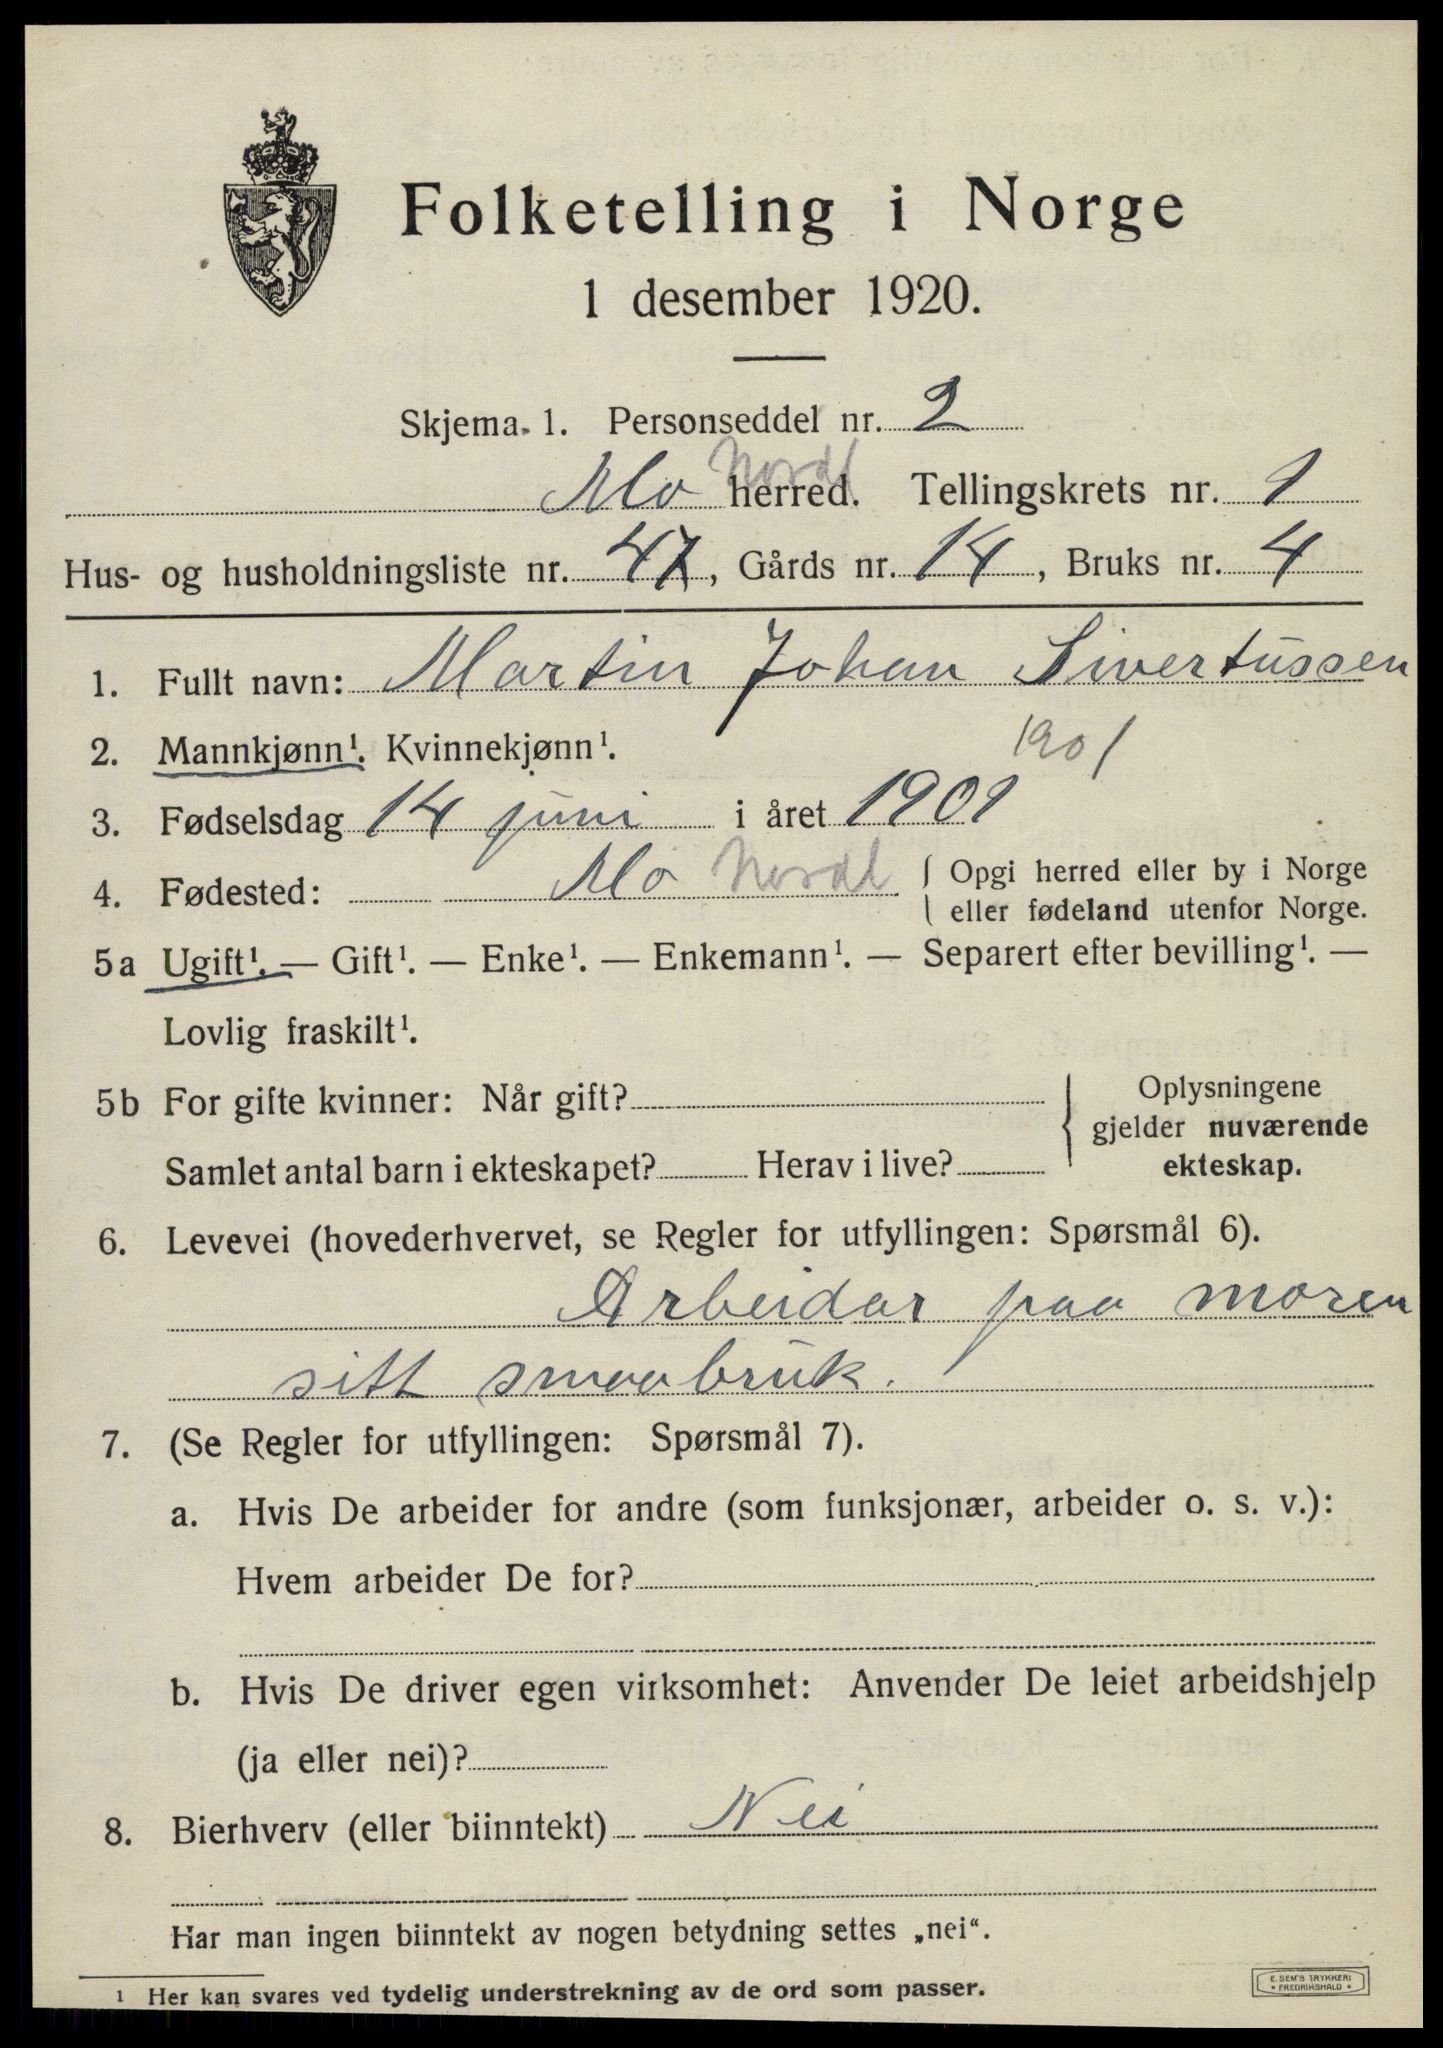 Folketelling i Norge
1 desember 1920.
Skjema 1. Personseddel nr. 2
Nordl
Mo herred. Tellingskrets nr. 1
Hus- og husholdningsliste nr. 47, Gårds nr. 14, Bruks nr. 4
1. Fullt navn: Martin Johan Sivertussen
2. Mannkjønn¹. Kvinnekjønn¹.
1901
3. Fødselsdag 14 juni i året 1901
4. Fødested: Mo Nordl { Opgi herred eller by i Norge
eller fødeland utenfor Norge.
5a Ugift¹. — Gift¹. — Enke¹. — Enkemann¹. — Separert efter bevilling¹. —
Lovlig fraskilt¹.
5b For gifte kvinner: Når gift?
Samlet antal barn i ekteskapet? Herav i live?
{ Oplysningene
gjelder nuværende
ekteskap.
6. Levevei (hovederhvervet, se Regler for utfyllingen: Spørsmål 6).
Arbeidar paa moren
sitt smaabruk.
7. (Se Regler for utfyllingen: Spørsmål 7).
a. Hvis De arbeider for andre (som funksjonær, arbeider o. s. v.):
Hvem arbeider De for?
b. Hvis De driver egen virksomhet: Anvender De leiet arbeidshjelp
(ja eller nei)?
8. Bierhverv (eller biinntekt) Nei
Har man ingen biinntekt av nogen betydning settes „nei“.
¹ Her kan svares ved tydelig understrekning av de ord som passer.
E. SEM'S TRYKKERI
FREDRIKSHALD